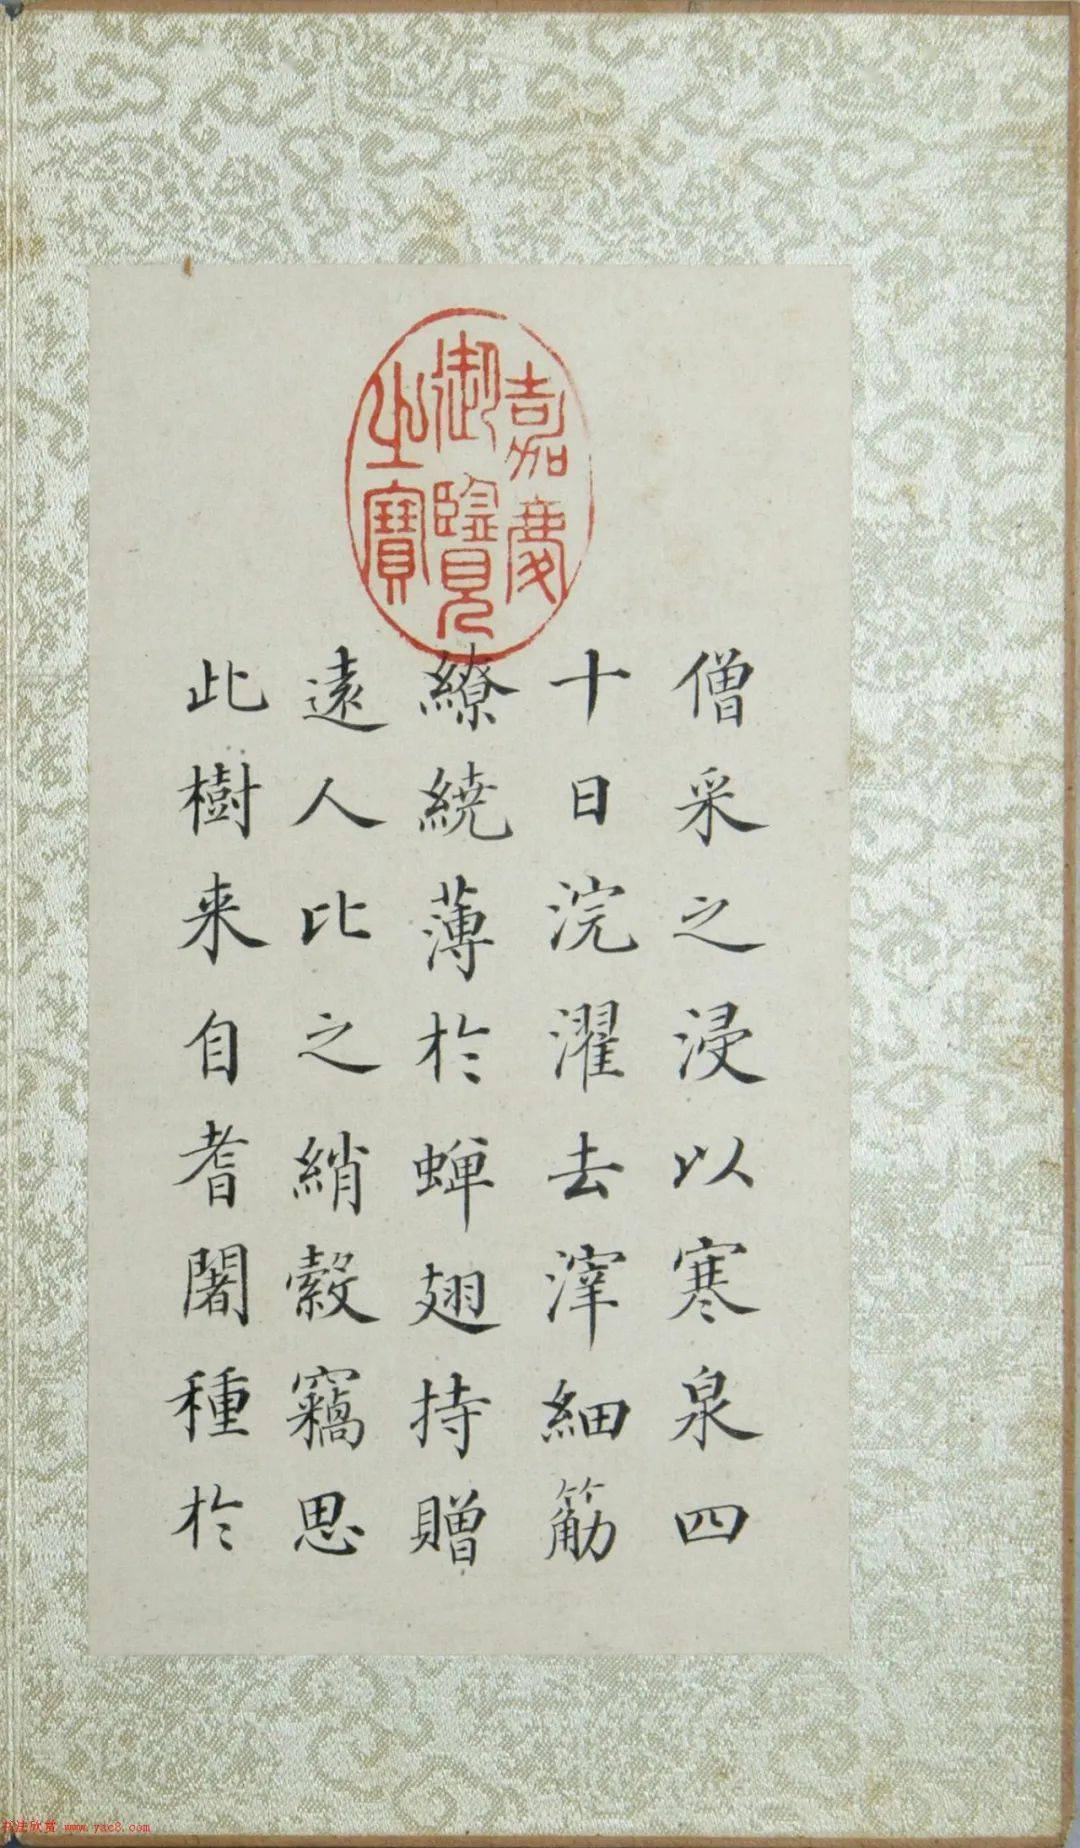 嘉慶
御覽
之寶
僧采之浸以寒泉四
十日浣濯去滓細筋
繚繞薄於蝉翅持贈
遠人比之綃縠竊思
此樹来自耆闍種於
书法欣赏 www.yac8.com